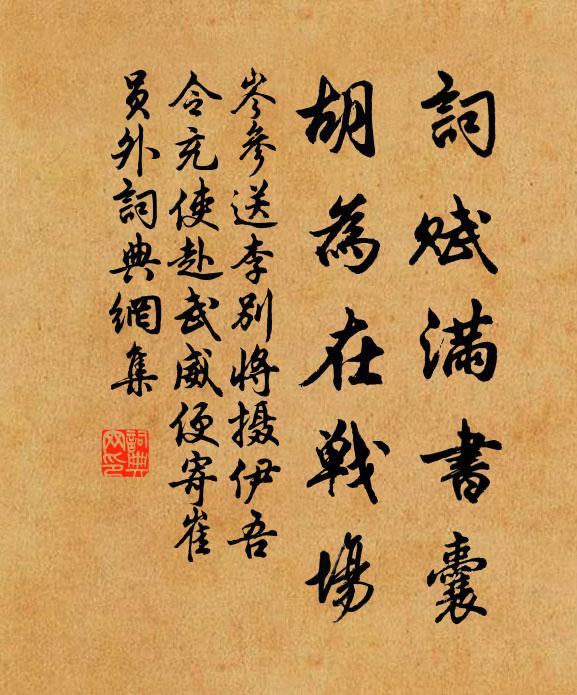 詞賦滿書囊
胡為在戰場
岑參送李別將摄伊吾
令充使赴武威便寄崔
員外詞典網集
詞典
网印